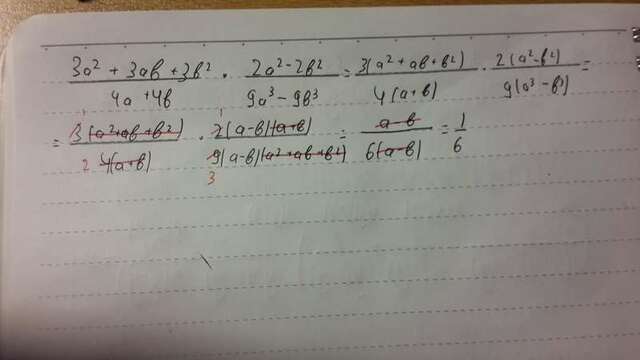 (3a² + 3ab + 3b²)/(4a + 4b) · (2a² - 2b²)/(9a³ - 9b³) = 3(a² + ab + b²)/4(a + b) · 2(a² - b²)/9(a³ - b³) =
= 3(a² + ab + b²)/4(a + b) · 2(a - b)(a + b)/9(a - b)(a² + ab + b²) = (a - b)/6(a - b) = 1/6